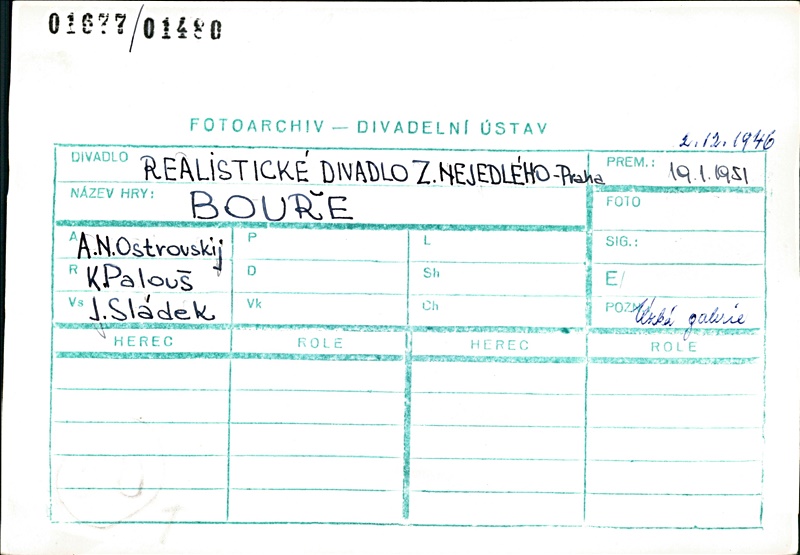 01677/01480
FOTOARCHIV — DIVADELNÍ ÚSTAV
2.12.1946
DIVADLO REALISTICKÉ DIVADLO Z. NEJEDLÉHO - Praha
PREM.: 19.1.1951
NÁZEV HRY: BOUŘE
FOTO
A A.N.Ostrovskij P L SIG.:
R K.Palouš D Sh E/
Vs J.Sládek Vk Ch POZN galerie
HEREC ROLE HEREC ROLE